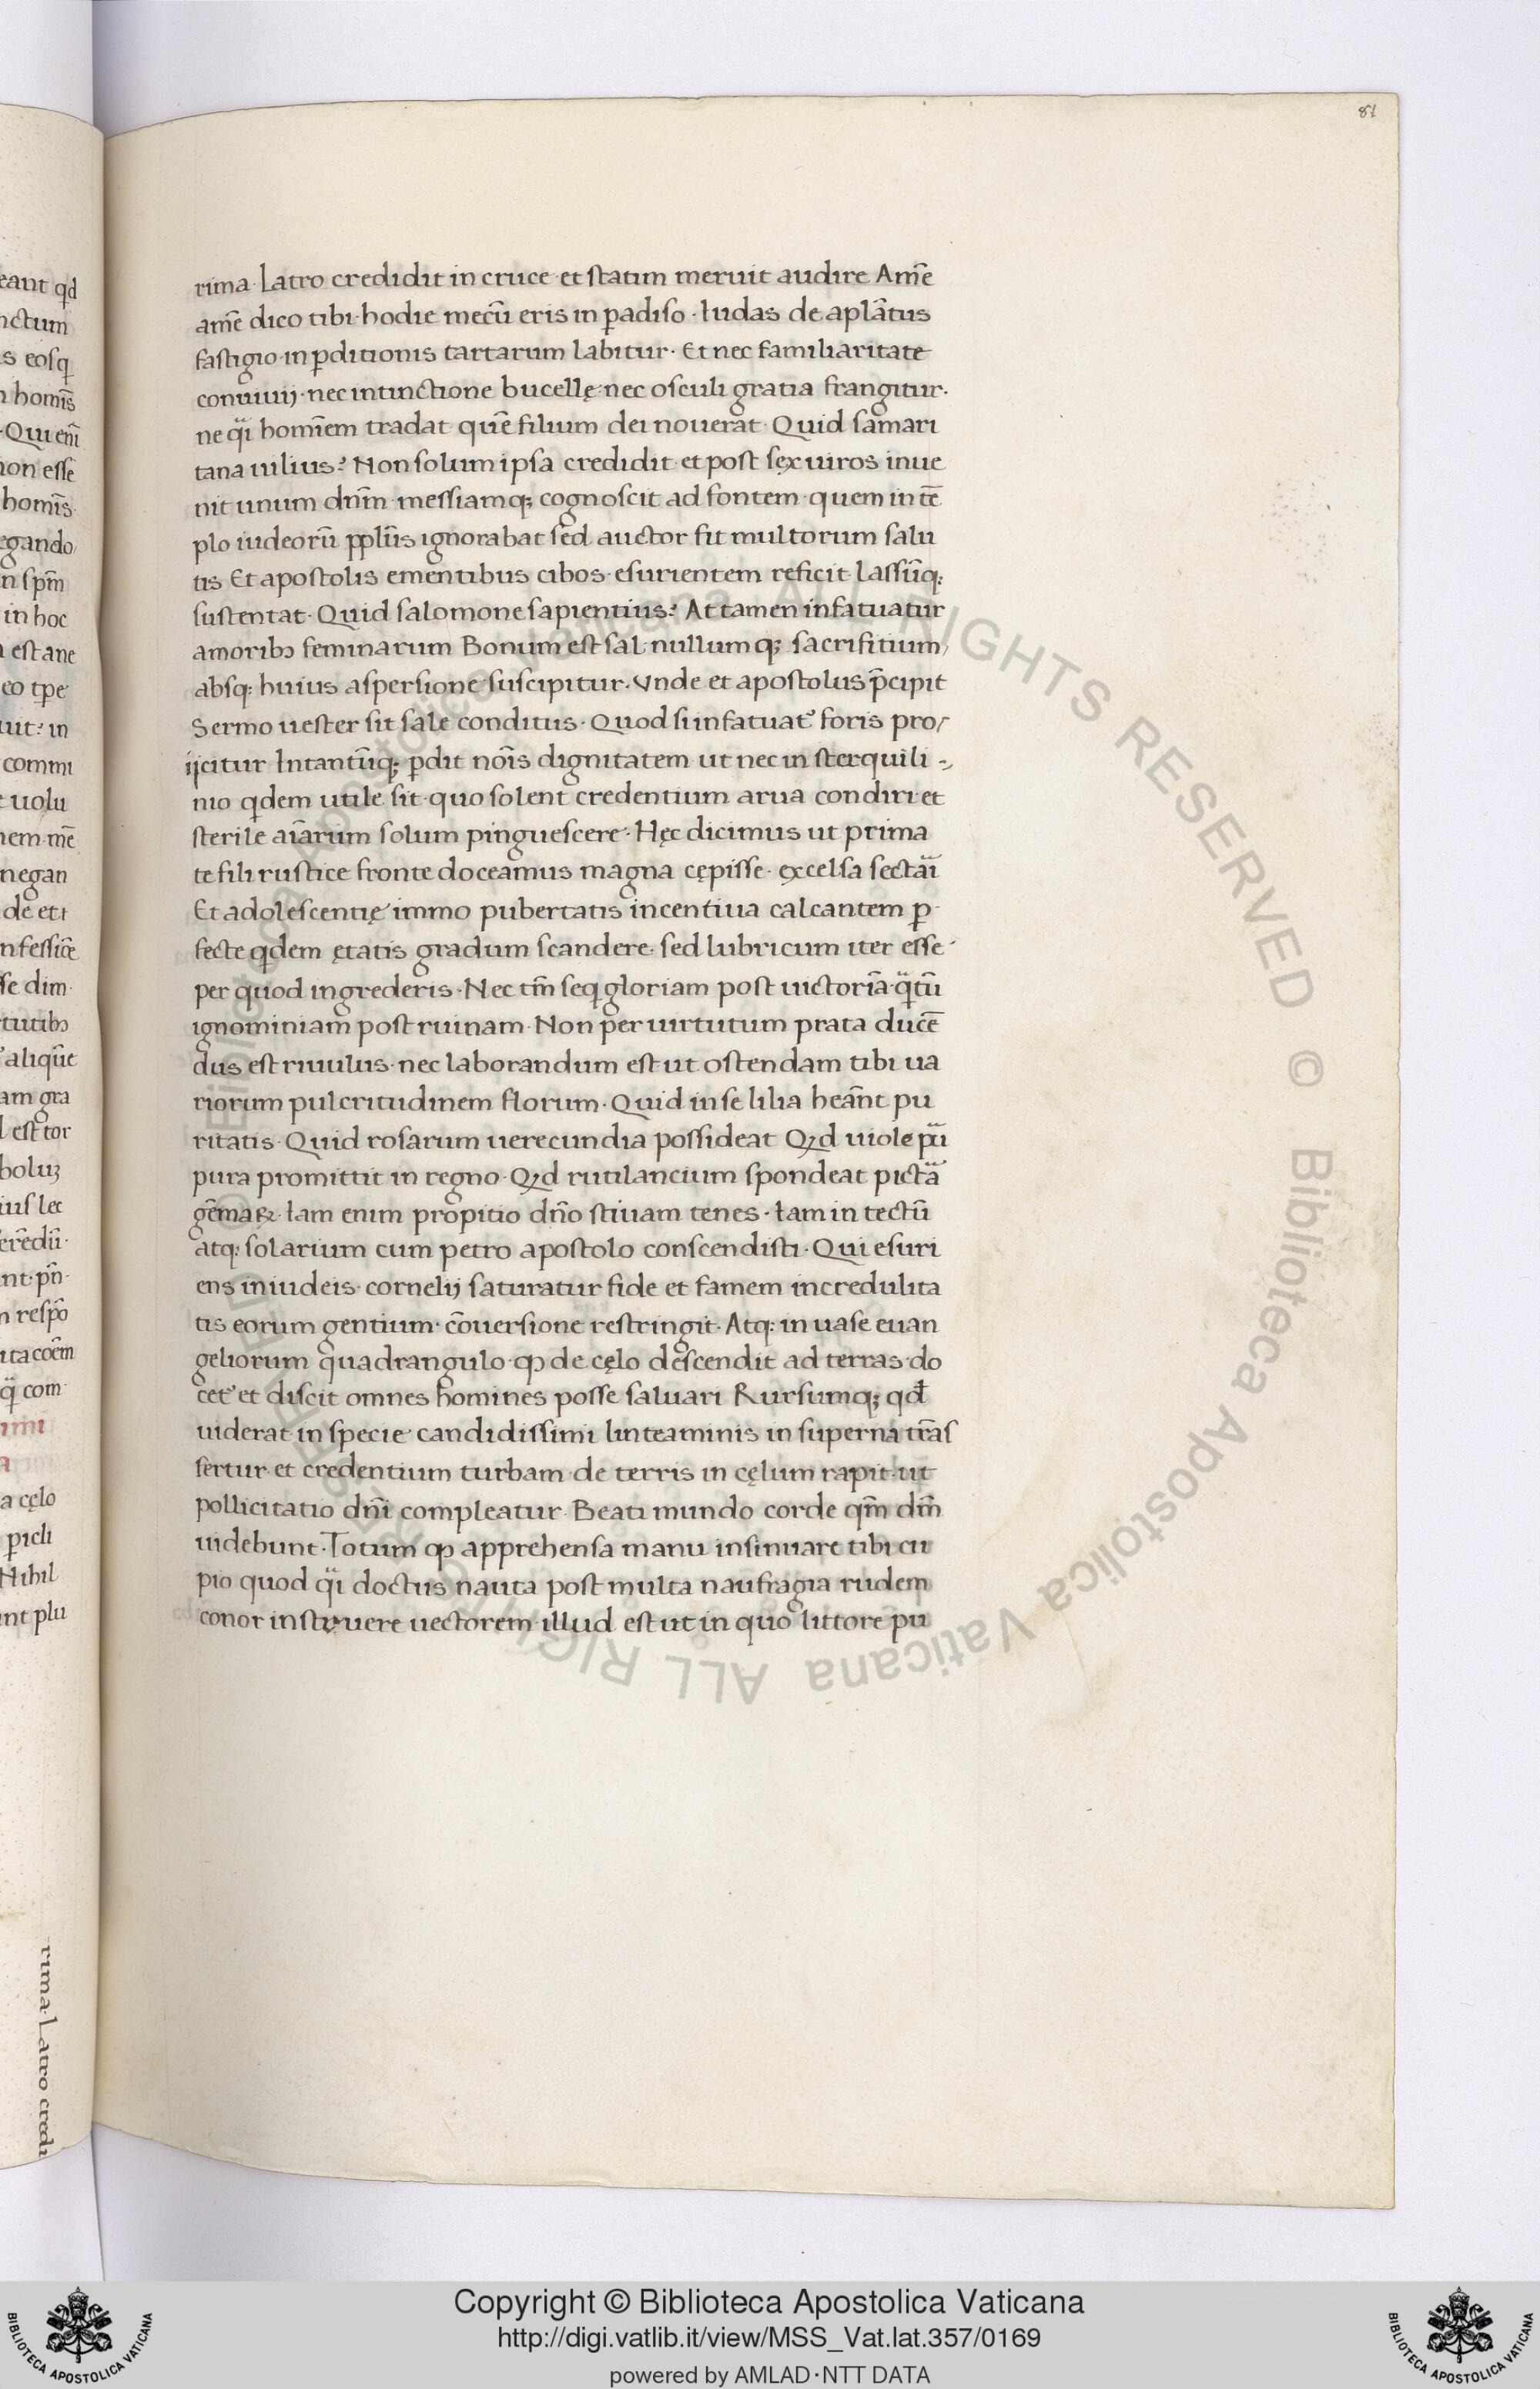 81
rima· Latro credidit in cruce· et statim meruit audire Amē
amē dico tibi· hodie mecū eris in ꝑadiso· Iudas de aplātus
fastigio· in ꝑditionis tartarum labitur· Et nec familiaritate
conuiuij· nec intinctione bucellę· nec osculi gratia frangitur·
ne q̈i homīem tradat quē filium dei nouerat· Quid samari
tana uilius? Non solum ipsa credidit· et post sex uiros inue
nit unum dnm̄· messiamq; cognoscit ad fontem· quem in tē
plo iudeorū pplūs ignorabat sed auctor fit multorum salu
tis Et apostolis ementibus cibos· esurientem reficit· lassūq;
sustentat· Quid salomone sapientius? At tamen infatuatur
amoribꝫ feminarum Bonum est sal· nullumq; sacrifitium
absq; huius aspersione suscipitur· Vnde et apostolus p̄cipit
Sermo uester sit sale conditus· Quod si infatuat᷒ foris pro/
ijcitur Intantūq; ꝑdit nōis dignitatem ut nec in sterquili
nio qdem utile sit· quo solent credentium arua condiri· et
sterile aīarum solum pinguescere· Hęc dicimus ut prima
te fili rustice fronte doceamus magna cępisse· excelsa sectāi
Et adolescentię immo pubertatis incentiua calcantem ꝑ
fecte qdem ętatis gradum scandere· sed lubricum iter esse
per quod ingrederis· Nec tm̄ seq gloriam post uictoriā q̈tū
ignominiam post ruinam· Non per uirtutum prata ducē
dus est riuulus· nec laborandum est ut ostendam tibi ua
riorum pulcritudinem florum· Quid in se lilia heānt pu
ritatis· Quid rosarum uerecundia possideat Qꝫd uiole pū
pura promittit in regno· Qꝫd rutilancium spondeat pictā
gēmaꝝ· Iam enim propitio dn̄o stiuam tenes· Iam in tectū
atq; solarium cum petro apostolo conscendisti· Qui esuri
ens in iudeis· cornelij saturatur fide et famem incredulita
tis eorum gentium· cōuersione restringit· Atq; in uase euan
geliorum quadrangulo ꝙ de cęlo descendit ad terras· do
cet᷒ et discit omnes homines posse saluari Rursumq; qd̄
uiderat in specie candidissimi linteaminis in superna trās
fertur· et credentium turbam de terris in cęlum rapit· ut
pollicitatio dn̄i compleatur· Beati mundo corde qm̄ dm̄
uidebunt· Totum ꝙ apprehensa manu insinuare tibi cu
pio quod q̈i doctus nauta post multa naufragia rudem
conor instruere uectorem· illud est ut in quo littore pu
rima· Latro credi
Copyright © Biblioteca Apostolica Vaticana
http://digi.vatlib.it/view/MSS_Vat.lat.357/0169
powered by AMLAD·NTT DATA
BIBLIOTECA APOSTOLICA VATICANA
BIBLIOTECA APOSTOLICA VATICANA